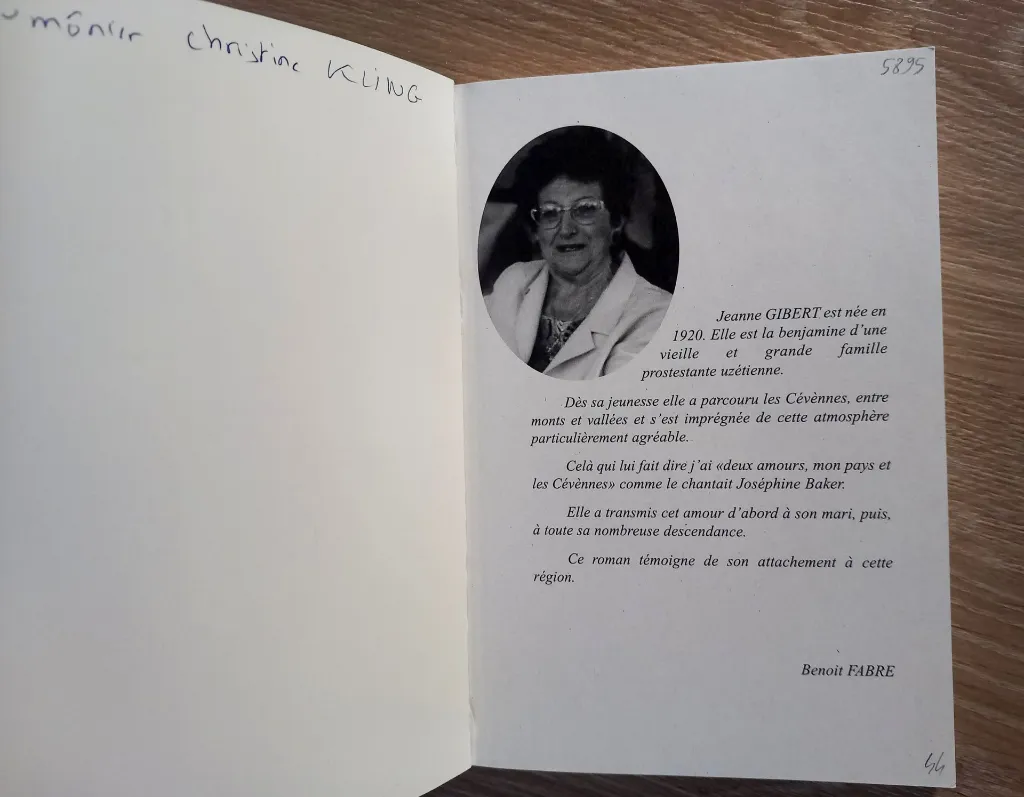 christine KLING
5895
Jeanne GIBERT est née en
1920. Elle est la benjamine d'une
vieille et grande famille
prostestante uzétienne.
Dès sa jeunesse elle a parcouru les Cévènnes, entre
monts et vallées et s'est imprégnée de cette atmosphère
particulièrement agréable.
Celà qui lui fait dire j'ai «deux amours, mon pays et
les Cévènnes» comme le chantait Joséphine Baker.
Elle a transmis cet amour d'abord à son mari, puis,
à toute sa nombreuse descendance.
Ce roman témoigne de son attachement à cette
région.
Benoit FABRE